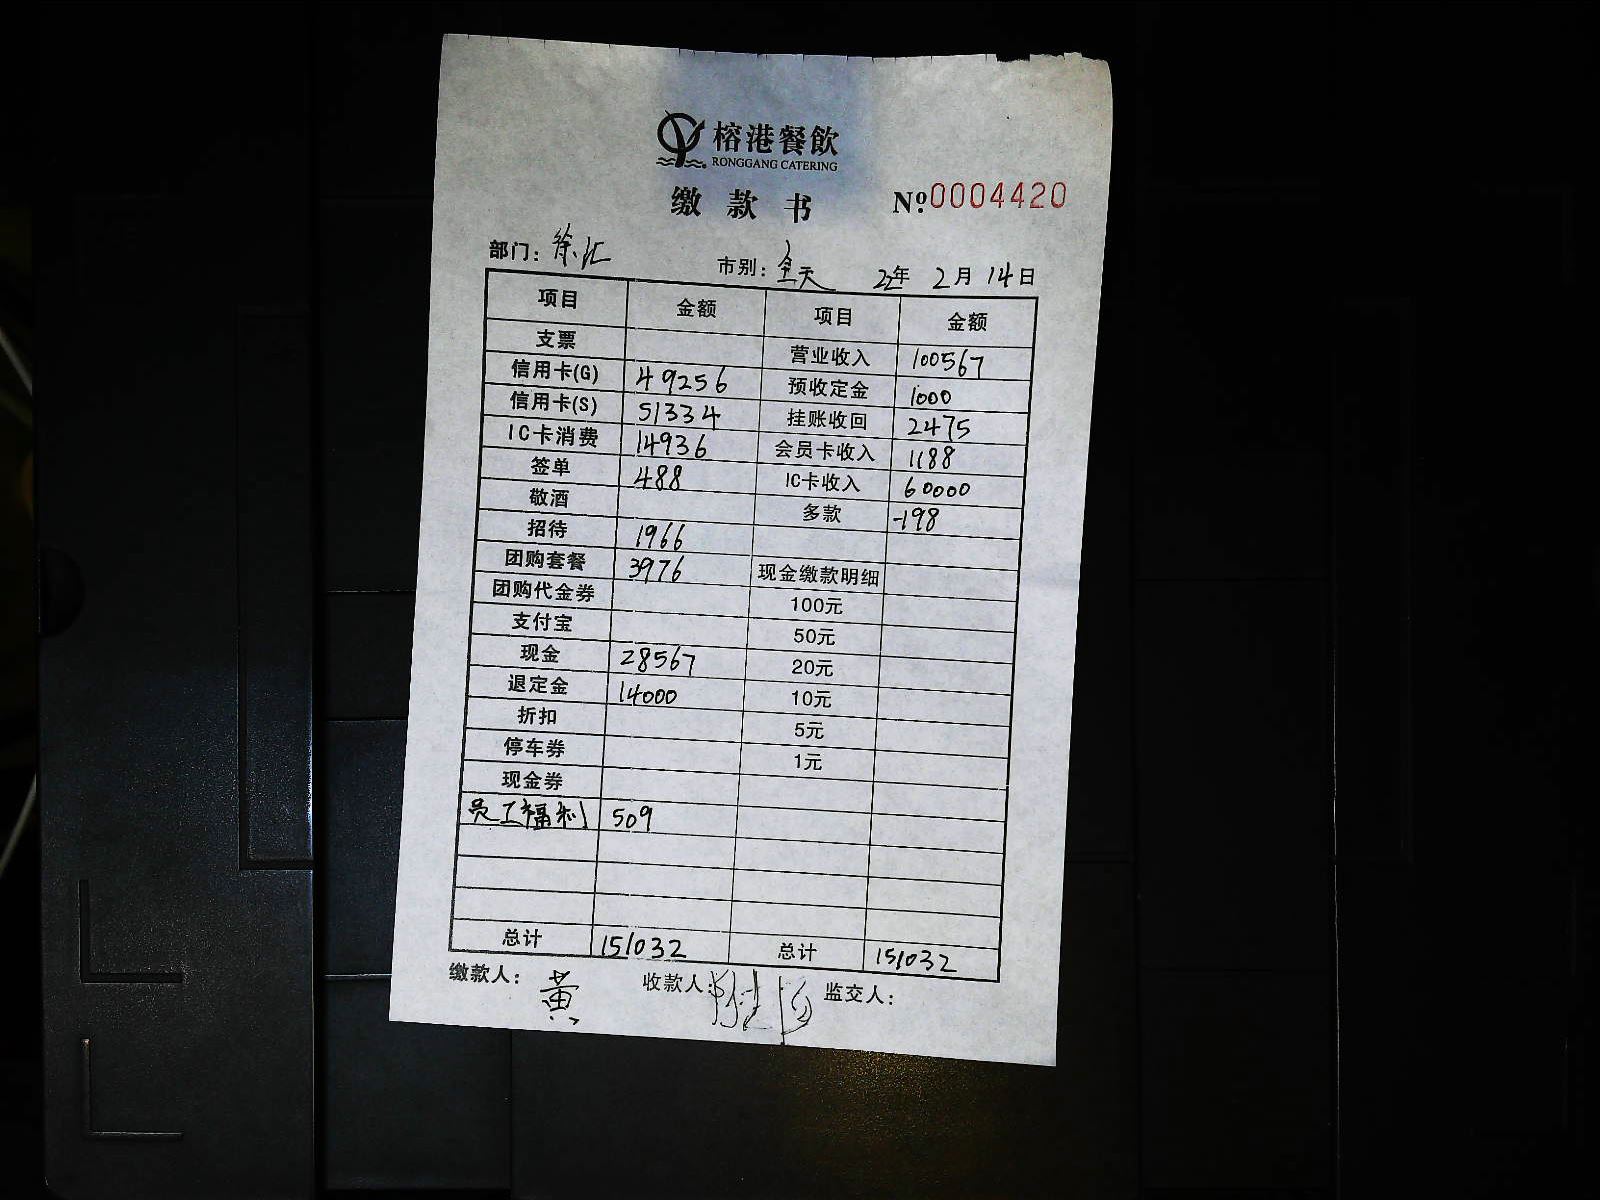 榕港餐飲
RONGGANG CATERING
缴款书 №0004420
部门：徐汇 市别：全天 22年 2月 14日
项目 金额 项目 金额
支票 营业收入 100567
信用卡(G) 49256 预收定金 1000
信用卡(S) 51334 挂账收回 2475
IC卡消费 14936 会员卡收入 1188
签单 488 IC卡收入 60000
敬酒 多款 -198
招待 1966
团购套餐 3976 现金缴款明细
团购代金券 100元
支付宝 50元
现金 28567 20元
退定金 14000 10元
折扣 5元
停车券 1元
现金券
员工福利 509
总计 151032 总计 151032
缴款人：黄 收款人： 监交人：